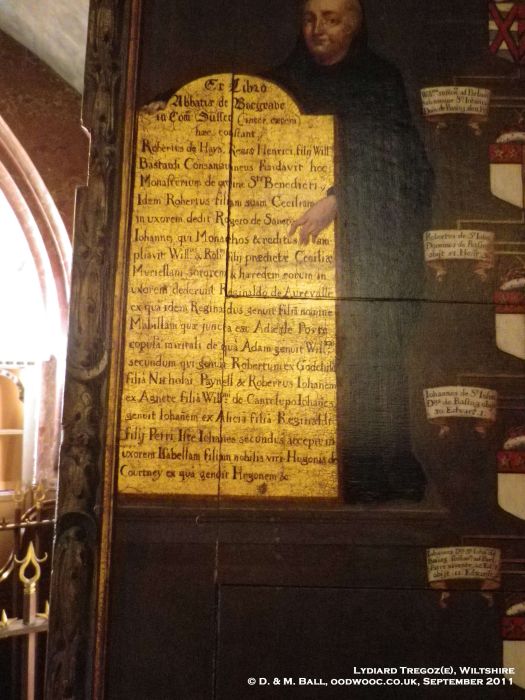 Ex Libro
Abbatiæ de Boxgrave
in Com Sussex (inter cætera)
hæc constant.
Robertus de Haya, Regis Henrici filij Will.
Bastardi Consanguineus fundavit hoc
Monasterium de ordine Sti Benedicti
Idem Robertus filiam suam Ceciliam
in uxorem dedit Rogero de Sancto
Iohanno, qui Monachos & reditus am
pliavit Will. & Rob. filij prædictæ Ceciliæ
Murielam sororem & hæredem eorum in
uxorem dederunt Reginaldo de Aurevalle
ex qua idem Reginaldus genuit filiā nomine
Mabillam quæ juncta est Adæ de Portu
copula maritali de quâ Adam genuit Will.
secundum qui genuit Robertum ex Godchild
filiâ Nicholai Paynell & Robertus Iohanem
ex Agnete filiâ Will. de Cantelupo Iohanes
genuit Iohanem ex Aliciâ filiâ Reginaldi
filij Petri Iste Iohanes secundus accepit in
uxorem Isabellam filiam nobilis viri Hugonis de
Courtney ex quâ genuit Hugonem &c
Iohannes de St Iohn
de Basing
30 Edwar: 1
Robertus de St Iohn
Dominus de Basing
obijt 51 Hen:
LYDIARD TREGOZ(E), WILTSHIRE
© D. & M. BALL, OODWOOC.CO.UK, SEPTEMBER 2011